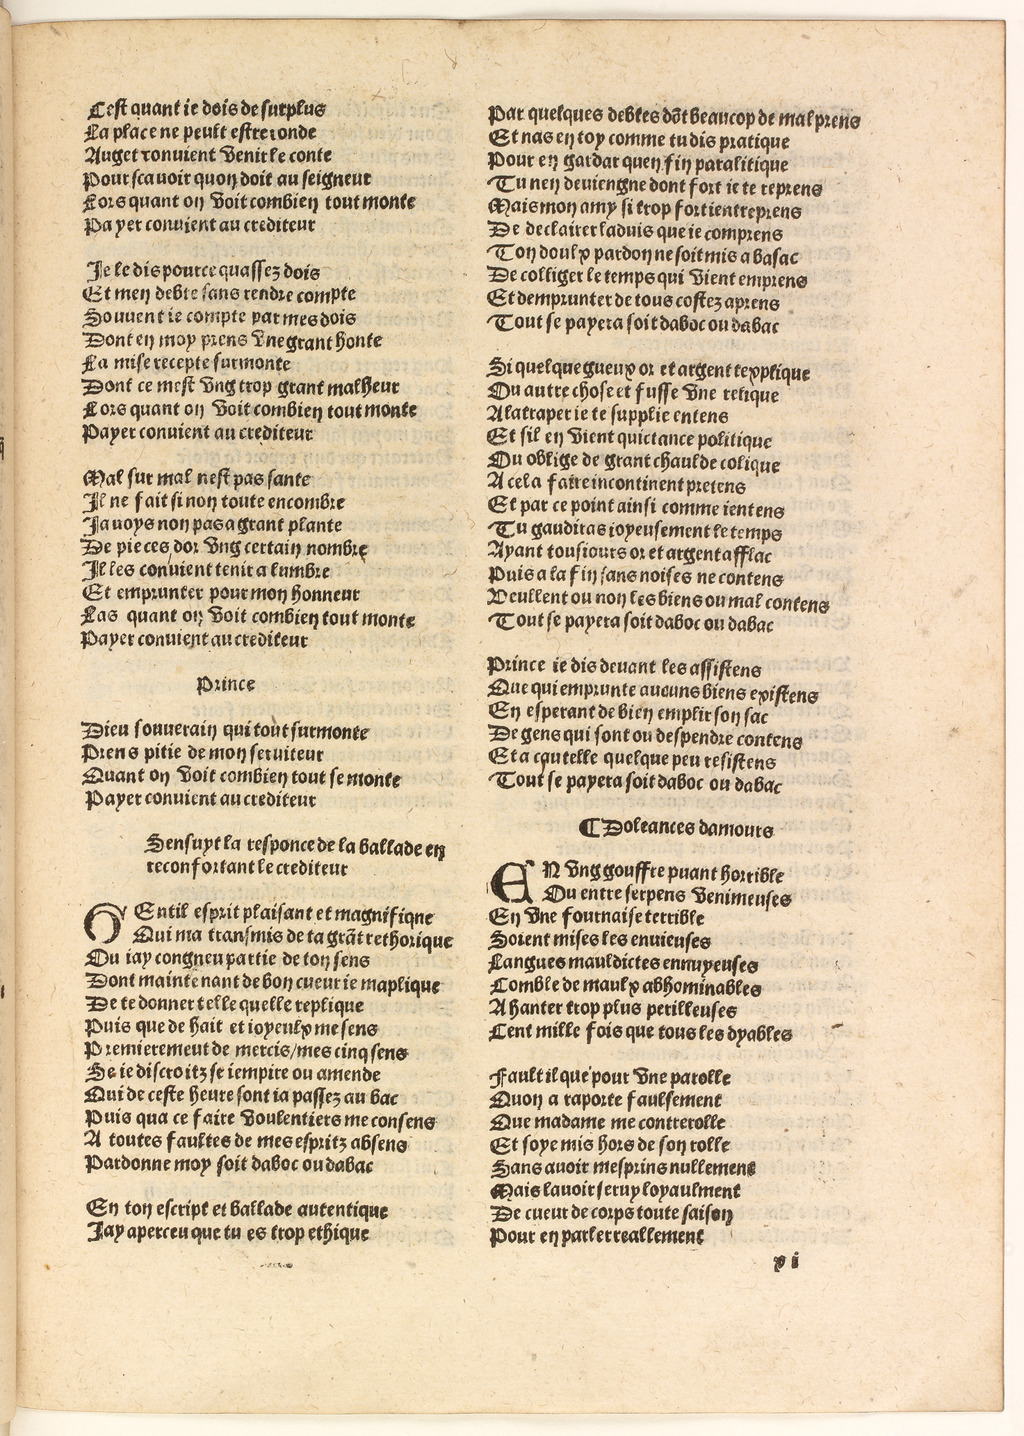 Cest quant ie dois de surplus
La place ne peult estre ronde
Auget conuient venir le conte
Pour scauoir quon doit au seigneur
Lors quant on voit combien tout monte
Payer conuient au crediteur
Je le dis pource quassez dois
Et men debte sans rendre compte
Souuent ie compte par mes dois
Dont en moy prens vne grant honte
La mise recepte surmonte
Dont ce mest vng trop grant malheur
Lors quant on voit combien tout monte
Payer conuient au crediteur
Mal sur mal nest pas sante
Il ne fait si non toute encombre
Jauoys non pas a grant plante
De pieces dor vng certain nombre
Il les conuient tenir a lumbre
Et emprunter pour mon honneur
Las quant on voit combien tout monte
Payer conuient au crediteur
Prince
Dieu souuerain qui tout surmonte
Prens pitie de mon seruiteur
Quant on voit combien tout se monte
Payer conuient au crediteur
Sensuyt la responce de la ballade en
reconfortant le crediteur
GEntil esprit plaisant et magnifique
Qui ma transmis de ta grãt rethorique
Ou iay congneu partie de ton sens
Dont maintenant de bon cueur ie maplique
De te donner telle quelle replique
Puis que de hait et ioyeulx me sens
Premierement de mercis/mes cinq sens
Se ie discroitz se iempire ou amende
Qui de ceste heure sont ia passez au bac
Puis qua ce faire voulentiers me consens
A toutes faultes de mes espritz absens
Pardonne moy soit daboc ou dabac
En ton escript et ballade autentique
Jay aperceu que tu es trop ethique
Par quelques debtes dõt beaucop de mal prens
Et nas en toy comme tu dis pratique
Pour en gardar quen fin paralitique
Tu nen deuiengne dont fort ie te reprens
Mais mon amy si trop fort ientreprens
De declairer laduis que ie comprens
Ton doulx pardon ne soit mis a basac
De colliger le temps qui vient emprens
Et demprunter de tous costez aprens
Tout se payera soit daboc ou dabac
Si quelque gueux or et argent texplique
Ou autre chose et fusse vne relique
A latraper ie te supplie entens
Et sil en vient quictance politique
Ou oblige de grant chault de colique
A cela faire incontinent pretens
Et par ce point ainsi comme ientens
Tu gaudiras ioyeusement le temps
Ayant tousiours or et argent afflac
Puis a la fin sans noises ne contens
Veullent ou non les biens ou mal contens
Tout se payera soit daboc ou dabac
Prince ie dis deuant les assistens
Que qui emprunte aucuns biens existens
En esperant de bien emplir son sac
De gens qui sont ou despendre contens
Et a cautelle quelque peu resistens
Tout se payera soit daboc ou dabac
¶ Doleances damours
EN vng gouffre puant horrible
Ou entre serpens venimeuses
En vne fournaise terrible
Soient mises les enuieuses
Langues mauldictes ennuyeuses
Comble de maulx abhominables
A hanter trop plus perilleuses
Cent mille fois que tous les dyables
Fault il que pour vne parolle
Quon a raporte faulsement
Que madame me contrerolle
Et soye mis hors de son rolle
Sans auoir mesprins nullement
Mais lauoir seruy loyaulment
De cueur de corps toute saison
Pour en parler reallement
xi